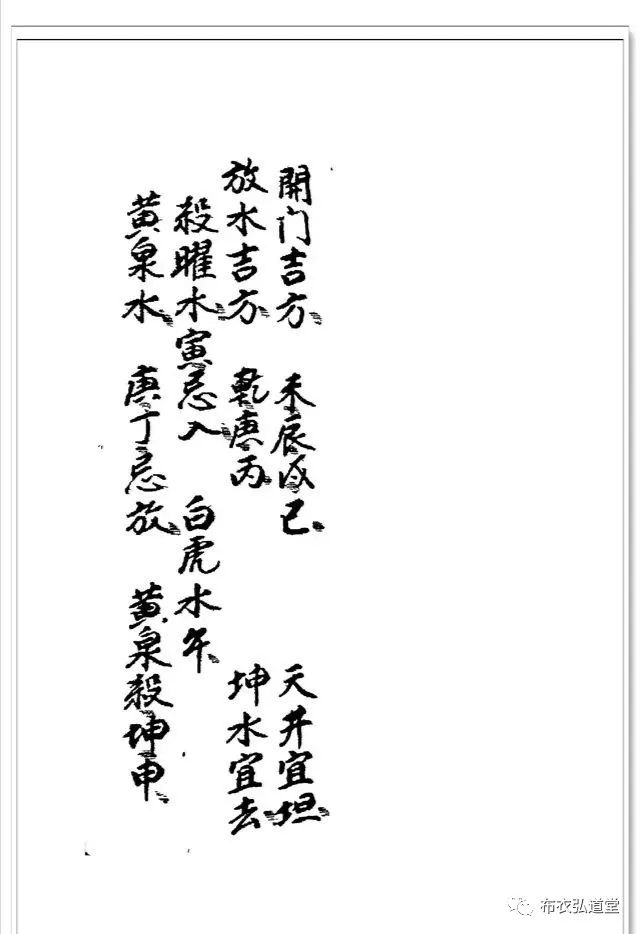 開门吉方 未辰戌巳 天井宜坦
放水吉方 乾庚丙 坤水宜去
殺曜水寅忌入 白虎水午
黄泉水 庚丁忌放 黄泉殺坤申
布衣弘道堂